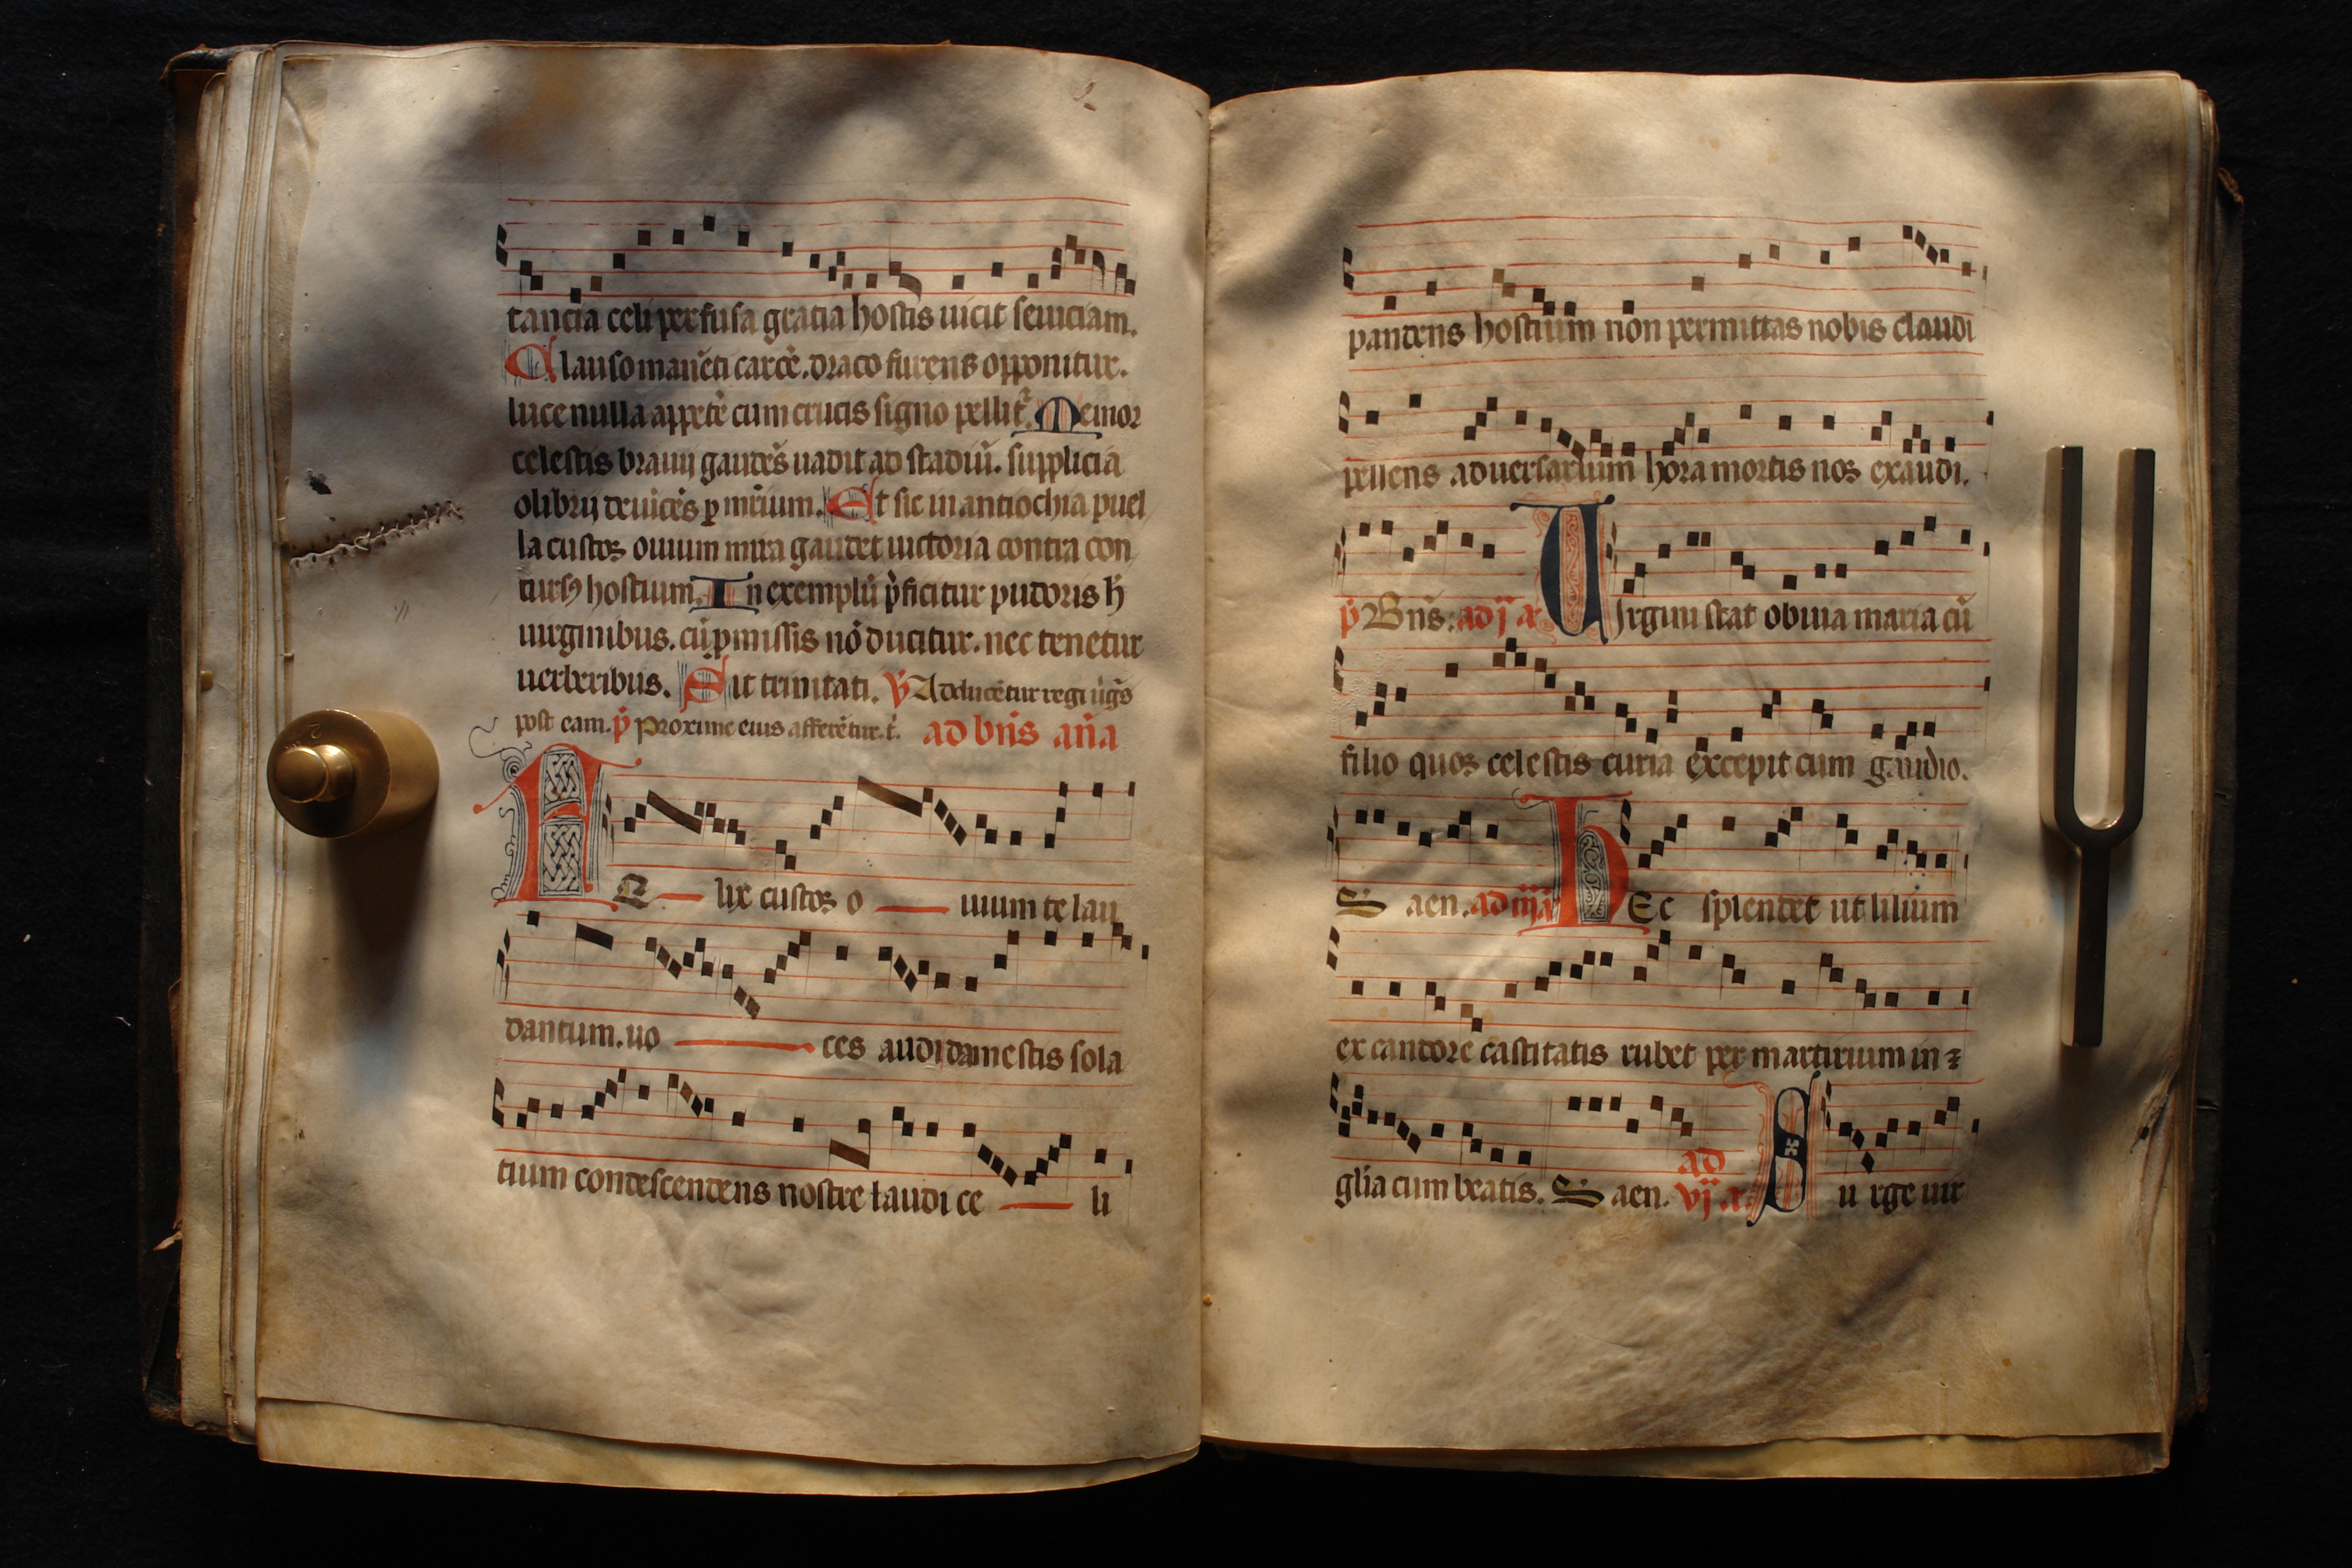 tancia celi perfusa gratia hostis uicit seuiciam.
Clauso maneti carce. draco furens opponitur.
luce nulla appete cum crucis signo pellit. Memor
celestis brauij gaudes uadit ad stadiu. supplicia
olibrij deuices p mrium. Et sic in antiochia puel
la custos ouium mira gaudet uictoria contra con
hostium. In exemplu pficitur pudoris h
uirginibus. cu pmissis no ducitur. nec tenetur
uerberibus. Sit trinitati. V Adducetur regi uigs
post eam. p Proxime eius afferetur. t. ad bns ana
FE lix custos o uium te lau
dantum. uo ces audi damestis sola
tium condescendens nostre laudi ce li
pandens hostium non permittas nobis claudi
pellens aduersarium hora mortis nos exaudi.
p Bns: ad ij a UIrgini stat obuia maria cu
filio quos celestis curia excepit cum gaudio.
S aen. ad iij a hEc splendet ut lilium
ex candore castitatis rubet per martirium in
glia cum beatis. S aen. ad vj a Su rge uir